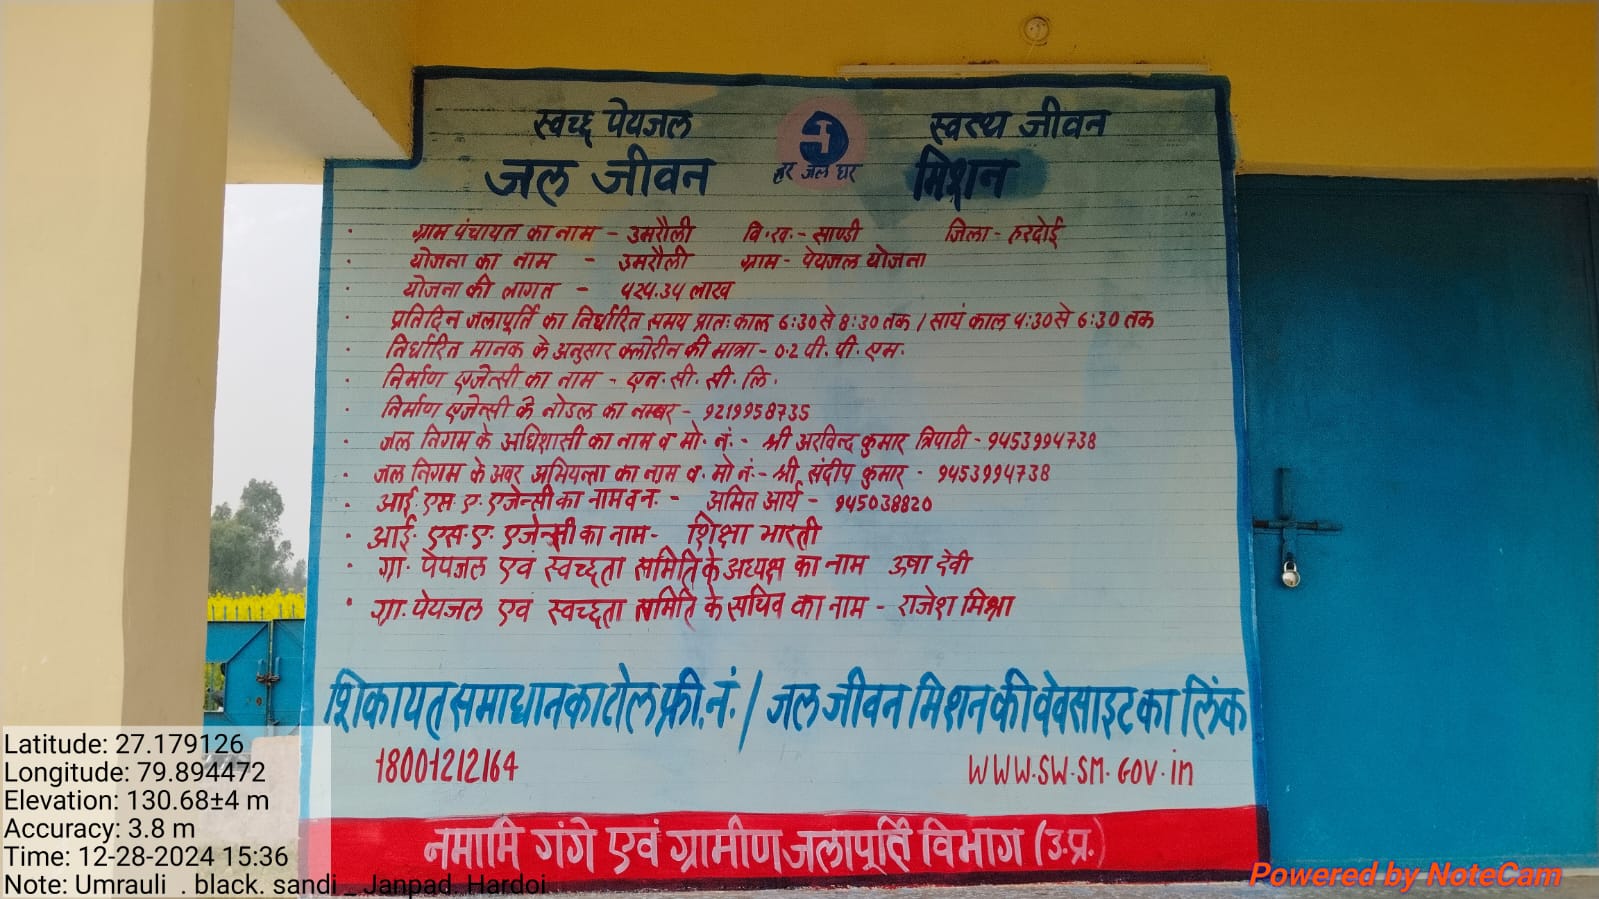 स्वच्छ पेयजल स्वस्थ जीवन
जल जीवन हर जल घर मिशन
• ग्राम पंचायत का नाम - उमरौली वि.ख.- साण्डी जिला - हरदोई
• योजना का नाम - उमरौली ग्राम - पेयजल योजना
• योजना की लागत - ५२५.३५ लाख
• प्रतिदिन जलापूर्ति का निर्धारित समय प्रातः काल 6:30 से 8:30 तक / सायं काल 4:30 से 6:30 तक
• निर्धारित मानक के अनुसार क्लोरीन की मात्रा - 0.2 पी. पी. एम.
• निर्माण एजेन्सी का नाम - एन. सी. सी. लि.
• निर्माण एजेन्सी के नोडल का नम्बर - 9219958735
• जल निगम के अधिशासी का नाम व मो. नं. - श्री अरविन्द कुमार त्रिपाठी - 9453994738
• जल निगम के अवर अभियन्ता का नाम व. मो नं:- श्री संदीप कुमार - 9453994738
• आई. एस. ए. एजेन्सी का नाम व न. - अमित आर्य - 945038820
• आई. एस. ए. एजेन्सी का नाम - शिक्षा भारती
• ग्रा. पेयजल एवं स्वच्छता समिति के अध्यक्ष का नाम ऊषा देवी
• ग्रा. पेयजल एवं स्वच्छता समिति के सचिव का नाम - राजेश मिश्रा
शिकायत समाधान का टोल फ्री. नं. / जल जीवन मिशन की वेवसाइट का लिंक
18001212164 WWW.SW.SM.GOV.in
नमामि गंगे एवं ग्रामीण जलापूर्ति विभाग (उ.प्र.)
Latitude: 27.179126
Longitude: 79.894472
Elevation: 130.68±4 m
Accuracy: 3.8 m
Time: 12-28-2024 15:36
Note: Umrauli . black. sandi _ Janpad Hardoi
Powered by NoteCam